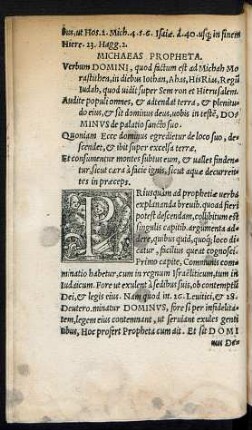 bus, ut Hos. 2. Mich. 4. 5. 6. Isaiæ. à. 40. usq; in finem
Hiere. 23. Hagg. 2.
MICHAEAS PROPHETA.
Verbum DOMINI, quod factum est ad Michah Mo
rasthiten, in diebus Iothan, Ahas, HisRias, Regũ
Iudah, quod uidit super Semron et Hierusalem.
Audite populi omnes, & attendat terra, & plenitu
do eius, & sit dominus deus, uobis in testẽ, DO
MINVS de palatio sancto suo.
Quoniam Ecce dominus egredietur de loco suo, de
scendet, & ibit super excelsa terræ.
Et consumentur montes subtus eum, & ualles finden
tur, sicut cæra à facie ignis, sicut aquæ decurren
tes in præceps.
PRiusquàm ad prophetiæ uerba
explananda breuib. quoad fieri
potest descendam, collibitum est
singulis capitib. argumenta ad
dere, quibus quid, quoq; loco di
catur, facilius queat cognosci.
Primo capite, Communis com
minatio habetur, cum in regnum Israëliticum, tum in
Iudaicum. Fore ut exulent à sedibus suis, ob contemptũ
Dei, & legis eius. Nam quod int. 26. Leuitici, & 28.
Deutero. minatur DOMINVS, fore si per infidelita
tem, legem eius contemnant, ut seruiant exules genti
bus, Hoc prosert Propheta cum ait. Et sit DOMI
nus De-